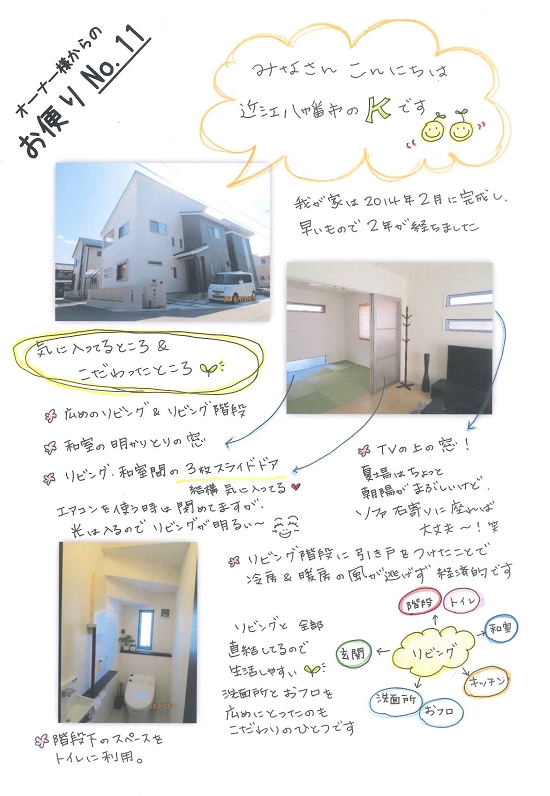 オーナー様からの
お便り No. 11
みなさん こんにちは
近江八幡市の Kです
我が家は2014年2月に完成し、
早いもので 2年が経ちました
気に入ってるところ &
こだわったところ
広めのリビング & リビング階段
和室の明かりとりの窓
リビング・和室間の 3枚スライドドア
結構 気に入ってる
エアコンを使う時は 閉めてますが、
光は入るので リビングが明るい~
TVの上の窓!
夏場はちょっと
朝陽がまぶしいけど、
ソファ右寄りに座れば
大丈夫~!笑
リビング階段に 引き戸をつけたことで
冷房&暖房の風が逃げず 経済的です
リビングと 全部
直結してるので
生活しやすい
洗面所とおフロを
広めにとったのも
こだわりのひとつです
階段
トイレ
和室
玄関
リビング
キッチン
洗面所
おフロ
階段下のスペースを
トイレに利用。